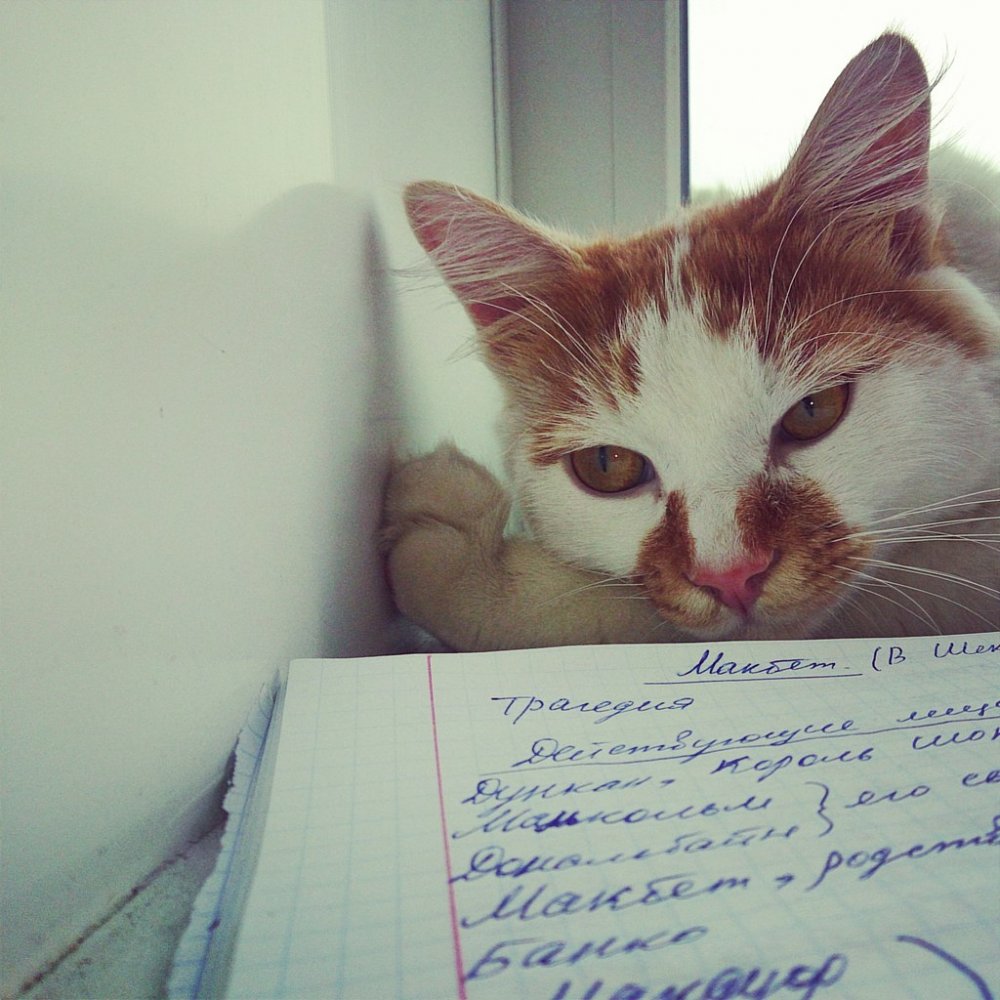 Макбет. (В Шек
Трагедия
Действующие лица
Дункан, король шот
Малкольм } его
Дональбайн }
Макбет, родств
Банко
Макдуф